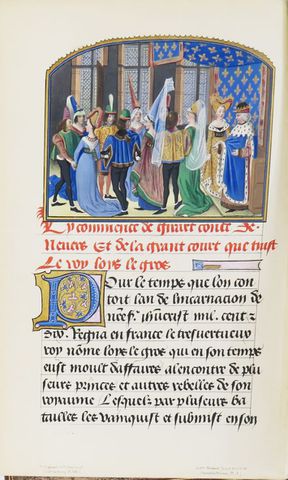 Cy commence de girart conte de
Nevers Et de la grant court que tinst
Le roy loys le gros
Pour le temps que lon con
toit lan de lincarnacion de
ihucrist mil. cent z
Regna en france le tresvertueux
roy nome loys le gros qui en son temps
eust moult daffaires alencontre de plu
seurs princes et autres rebelles de son
royaume Lesquelz par pluseurs ba
tailles les vainquist et submist en son